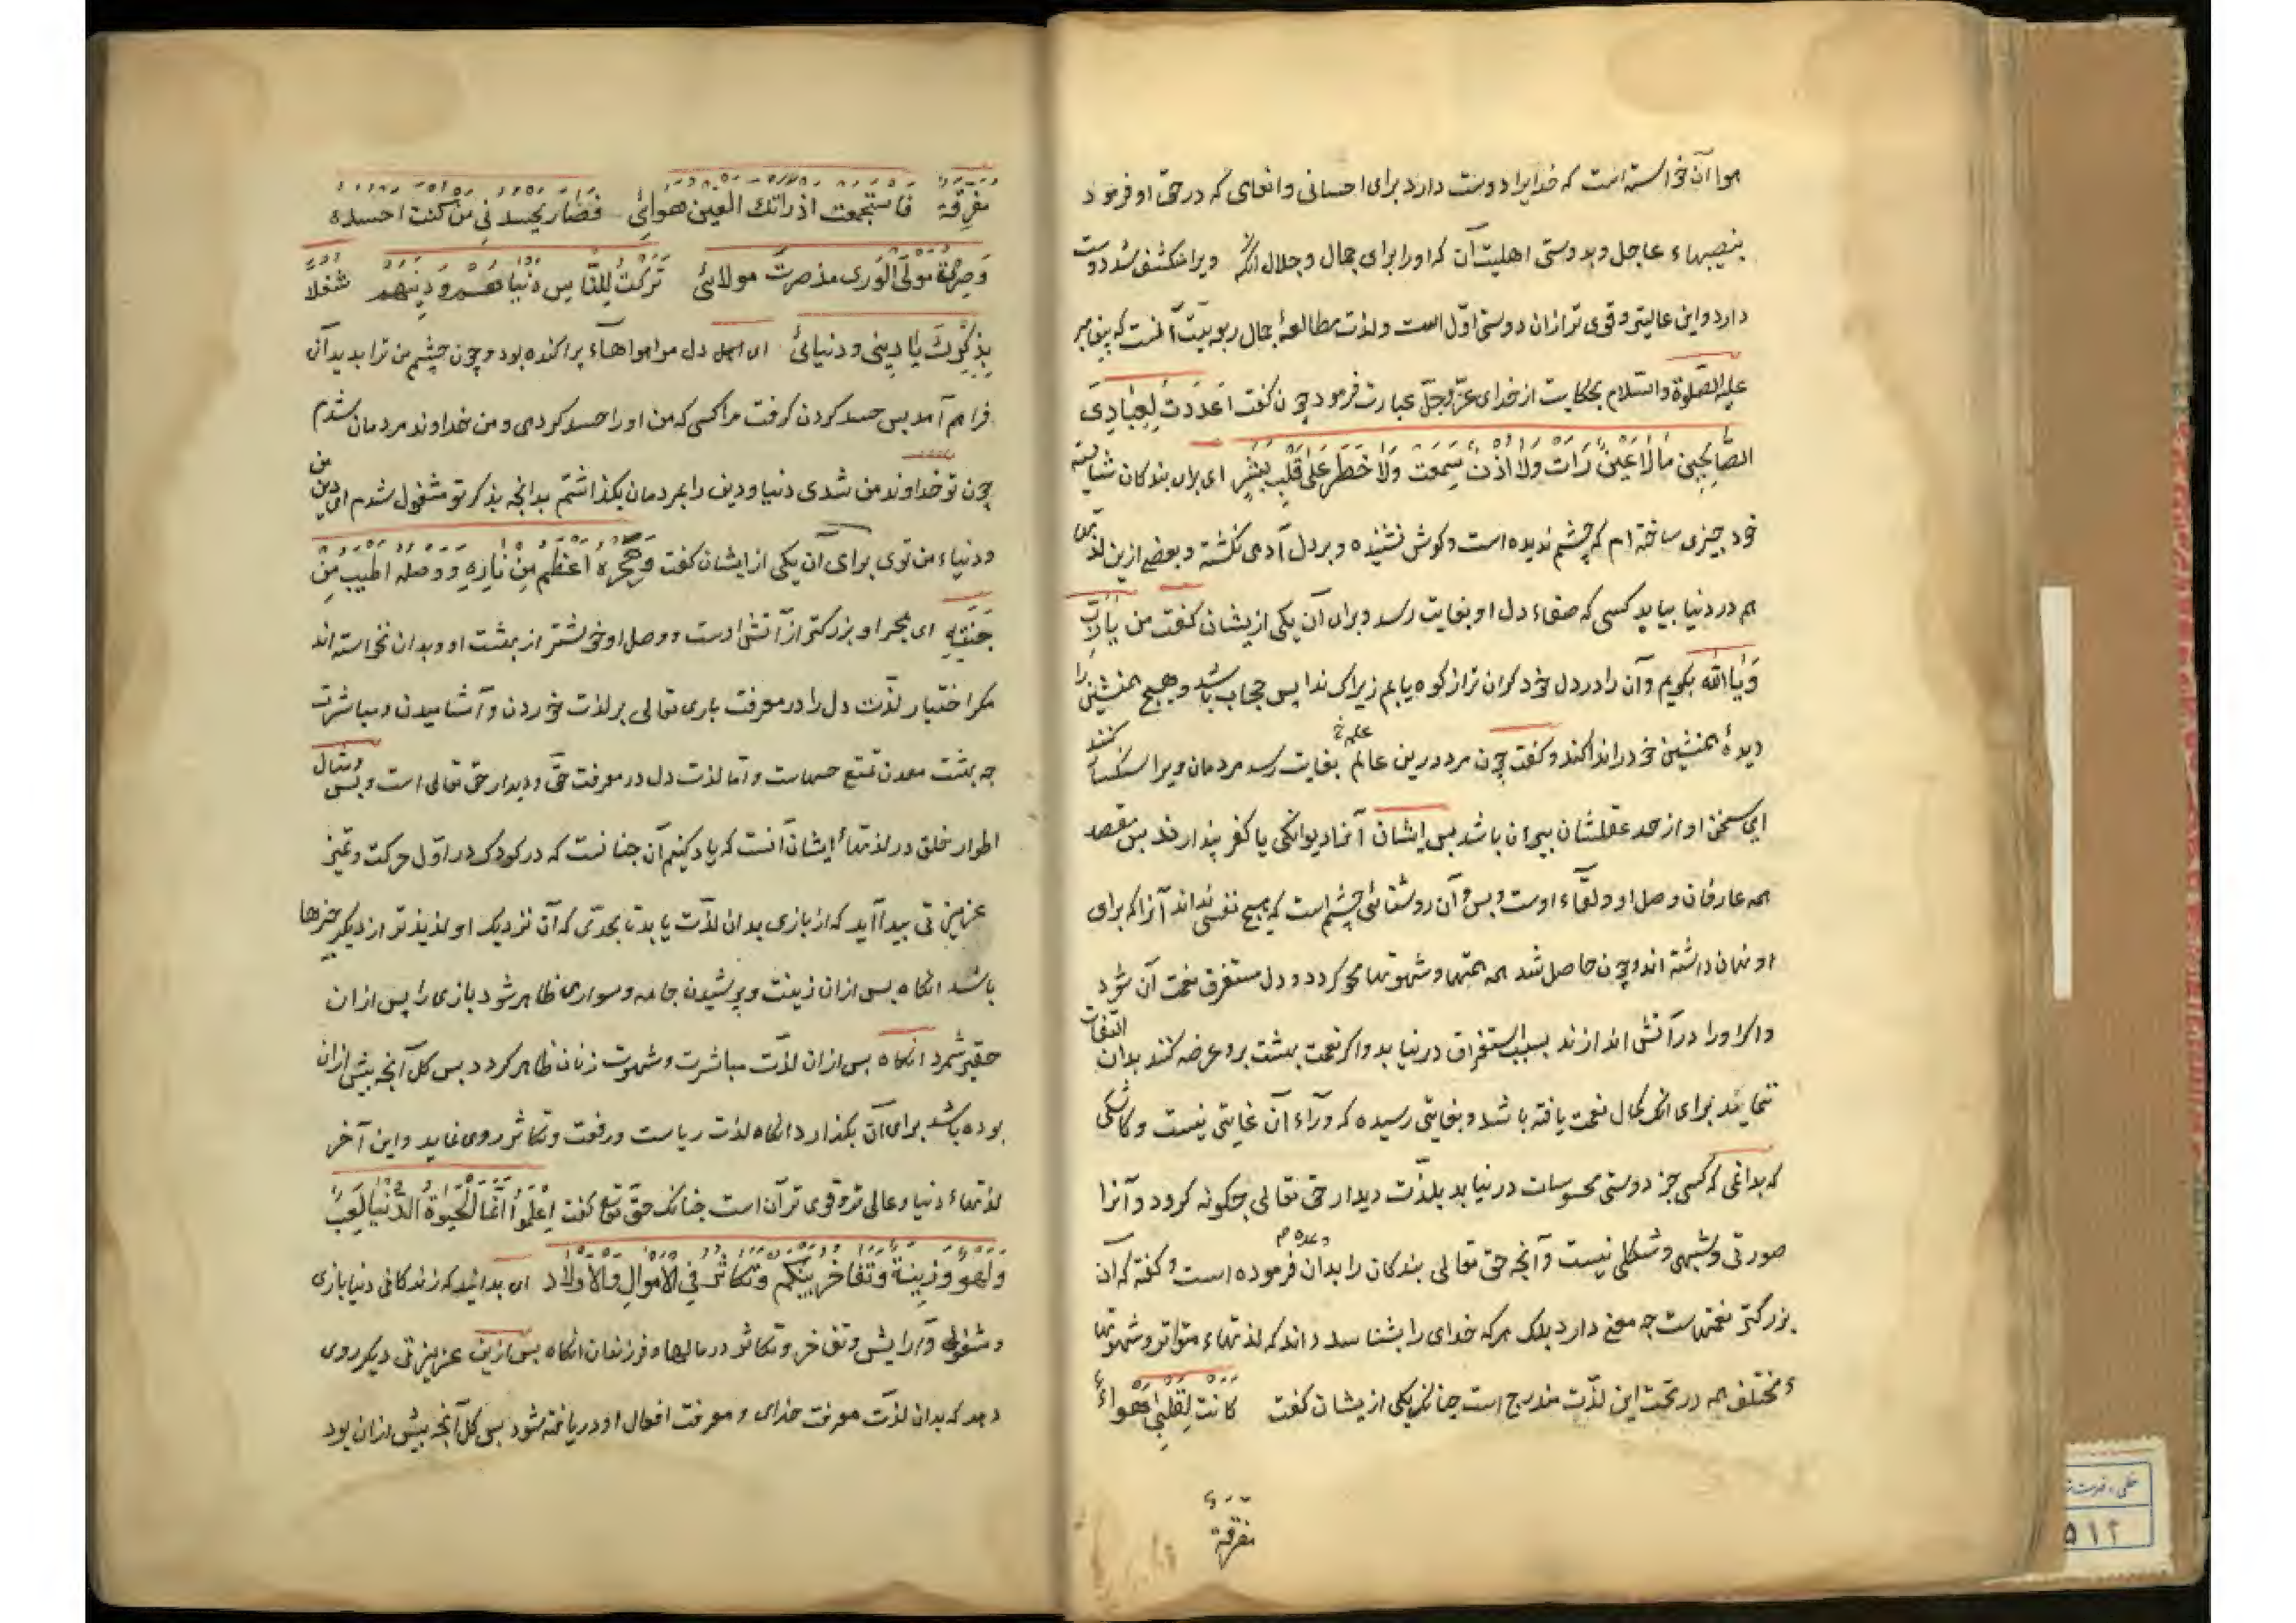 هوا آن خواسته است که خدایرا دوست دارد برای احسانی وانعامی که در حق او فرمود
بنصیبهاء عاجل وبدوستی اهلیت آن که او را برای جمال وجلال انکه ویرا منکشف شد دوست
دارد واین عالیتر وقوی تر ازان دوستی اوّل است ولذت مطالعهٔ جمال ربوبیّت آنست که پیغامبر
علیه الصّلوة والسّلام بحکایت از خدای عزّوجلّ عبارت فرمود چون کفت اَعْدَدتُ لِعِبَادِیَ
الصَّالِحِینَ مَا لَا عَیْنٌ رَاَتْ وَلَا اُذُنٌ سَمِعَتْ وَلَا خَطَرَ عَلَی قَلْبِ بَشَرٍ ای برای بندکان شایسته
خود چیزی ساخته ام که چشم ندیده است وکوش نشنیده وبر دل آدمی نکذشته وبعضی ازین لذتها
هم در دنیا بیابد کسی که صفاء دل او بغایت رسد وبرای آن یکی ازیشان کفت من یَا رَبِّ
وَیَا اَللّٰه بکویم وآن را در دل خود کران تر از کوه یابم زیراک ندا پس حجاب باشد وهیچ همنشینی را
دیدهٔ همنشین خود را ندا کند وکفت چون مرد درین عالم علم خ بغایت رسد مردمان ویرا سنکسار کنند
ای سخن او از حد عقلشان بیرون باشد پس ایشان آنرا دیوانکی یا کفر پندارند پس مقصد
همه عارفان وصل او ولقاء اوست وبس وآن روشنائی چشم است که هیچ نفسی نداند آنرا که برای
او نهان داشته اند وچون حاصل شد همه همتها وشهوتها محو کردد ودل مستغرق نعمت آن شود
واکر او را در آتش اندازند بسبب استغراق درنیابد واکر نعمت بهشت برو عرضه کنند بدان التفات
ننماید برای انک کمال نعمت یافته باشد وبغایتی رسیده که ورآء آن غایتی نیست وکاشکی
که بدانمی که کسی جز دوستی محسوسات درنیابد بلذّت دیدار حق تعالی چکونه کرود وآنرا
صورتی وشبهی وشکلی نیست وآنچه حق تعالی بندکان را بدان وعده م فرموده است وکفته که آن
بزرکتر نعمتهاست چه معنی دارد بلک هرکه خدای را بشناسد داند که لذتهاء متواتر وشهوتها
ء مختلف همه در تحت این لذّت مندرج است چنانکه یکی ازیشان کفت کانت لِقَلْبِی اَهْوَاءٌ
مفرقة
مُفَرَّقَة فاستجمعت اذ راتك العین هوائی فصار یحسدنی من کنت احسده
وَصِرْتُ مَوْلَی الْوَرَی مذ صرت مولائی تَرَکْتُ لِلنَّاسِ دُنْیَاهُمْ وَدِینَهُمْ شغلا
بِذِکْرِكَ یَا دِینِی ودنیائی ای دل مرا هواهآء پراکنده بود وچون چشم من ترا بدید آن
فراهم آمد پس حسد کردن کرفت مرا کسی که من او را حسد کردمی ومن خداوند مردمان شدم
چون تو خداوند من شدی دنیا ودین را بمردمان بکذاشتم بدانچه بذکر تو مشغول شدم ای دین من
ودنیاء من توی برای آن یکی از ایشان کفت وَهَجْرُه اَعْظَمُ مِنْ نَارِهِ وَوَصْلُه اَطْیَبُ مِنْ
جَنَّتِهِ ای هجر او بزرکتر از آتش اوست ووصل او خوشتر از بهشت او وبدان نخواسته اند
مکر اختیار لذّت دل را در معرفت باری تعالی بر لذت خوردن وآشامیدن ومباشرت
چه بهشت معدن تمتع حسهاست وامّا لذت دل در معرفت حقّ ودیدار حق تعالی است وبس ومثال
اطوار خلق در لذتهاء ایشان آنست که یاد کنیم آن چنانست که در کودک در اوّل حرکت وتمیز
غریزتی پیدا آید که از بازی بدان لذّت یابد تا بحدّی که آن نزدیک او لذیذتر از دیکر چیزها
باشد انکاه پس ازان زینت وپوشیدن جامه وسواری ظاهر شود بازی را پس ازان
حقیر شمرد انکاه پس ازان لذّت مباشرت وشهوت زنان ظاهر کردد پس کلّ آنچه پیش ازان
بوده باشد برای آن بکذارد انکاه لذّت ریاست ورفعت وتکاثر روی نماید واین آخر
لذتهاء دنیا وعالی تر وقوی تر آن است چنانک حقّ تع کفت اِعْلَمُوا اَنَّمَا الْحَیٰوةُ الدُّنْیَا لَعِبٌ
وَلَهْوٌ وَزِینَةٌ وَتَفَاخُرٌ بَیْنَکُمْ وَتَکَاثُرٌ فِی الْاَمْوَالِ وَالْاَوْلَادِ ای بدانید که زندکانی دنیا بازی
ومشغولی وآرایش وتفاخر وتکاثر در مالها وفرزندان انکاه پس ازین غریزتی دیکر روی
دهد که بدان لذّت معرفت خدای ومعرفت افعال او دریافته شود پس کلّ آنچه پیش ازان بود
۵۱۲